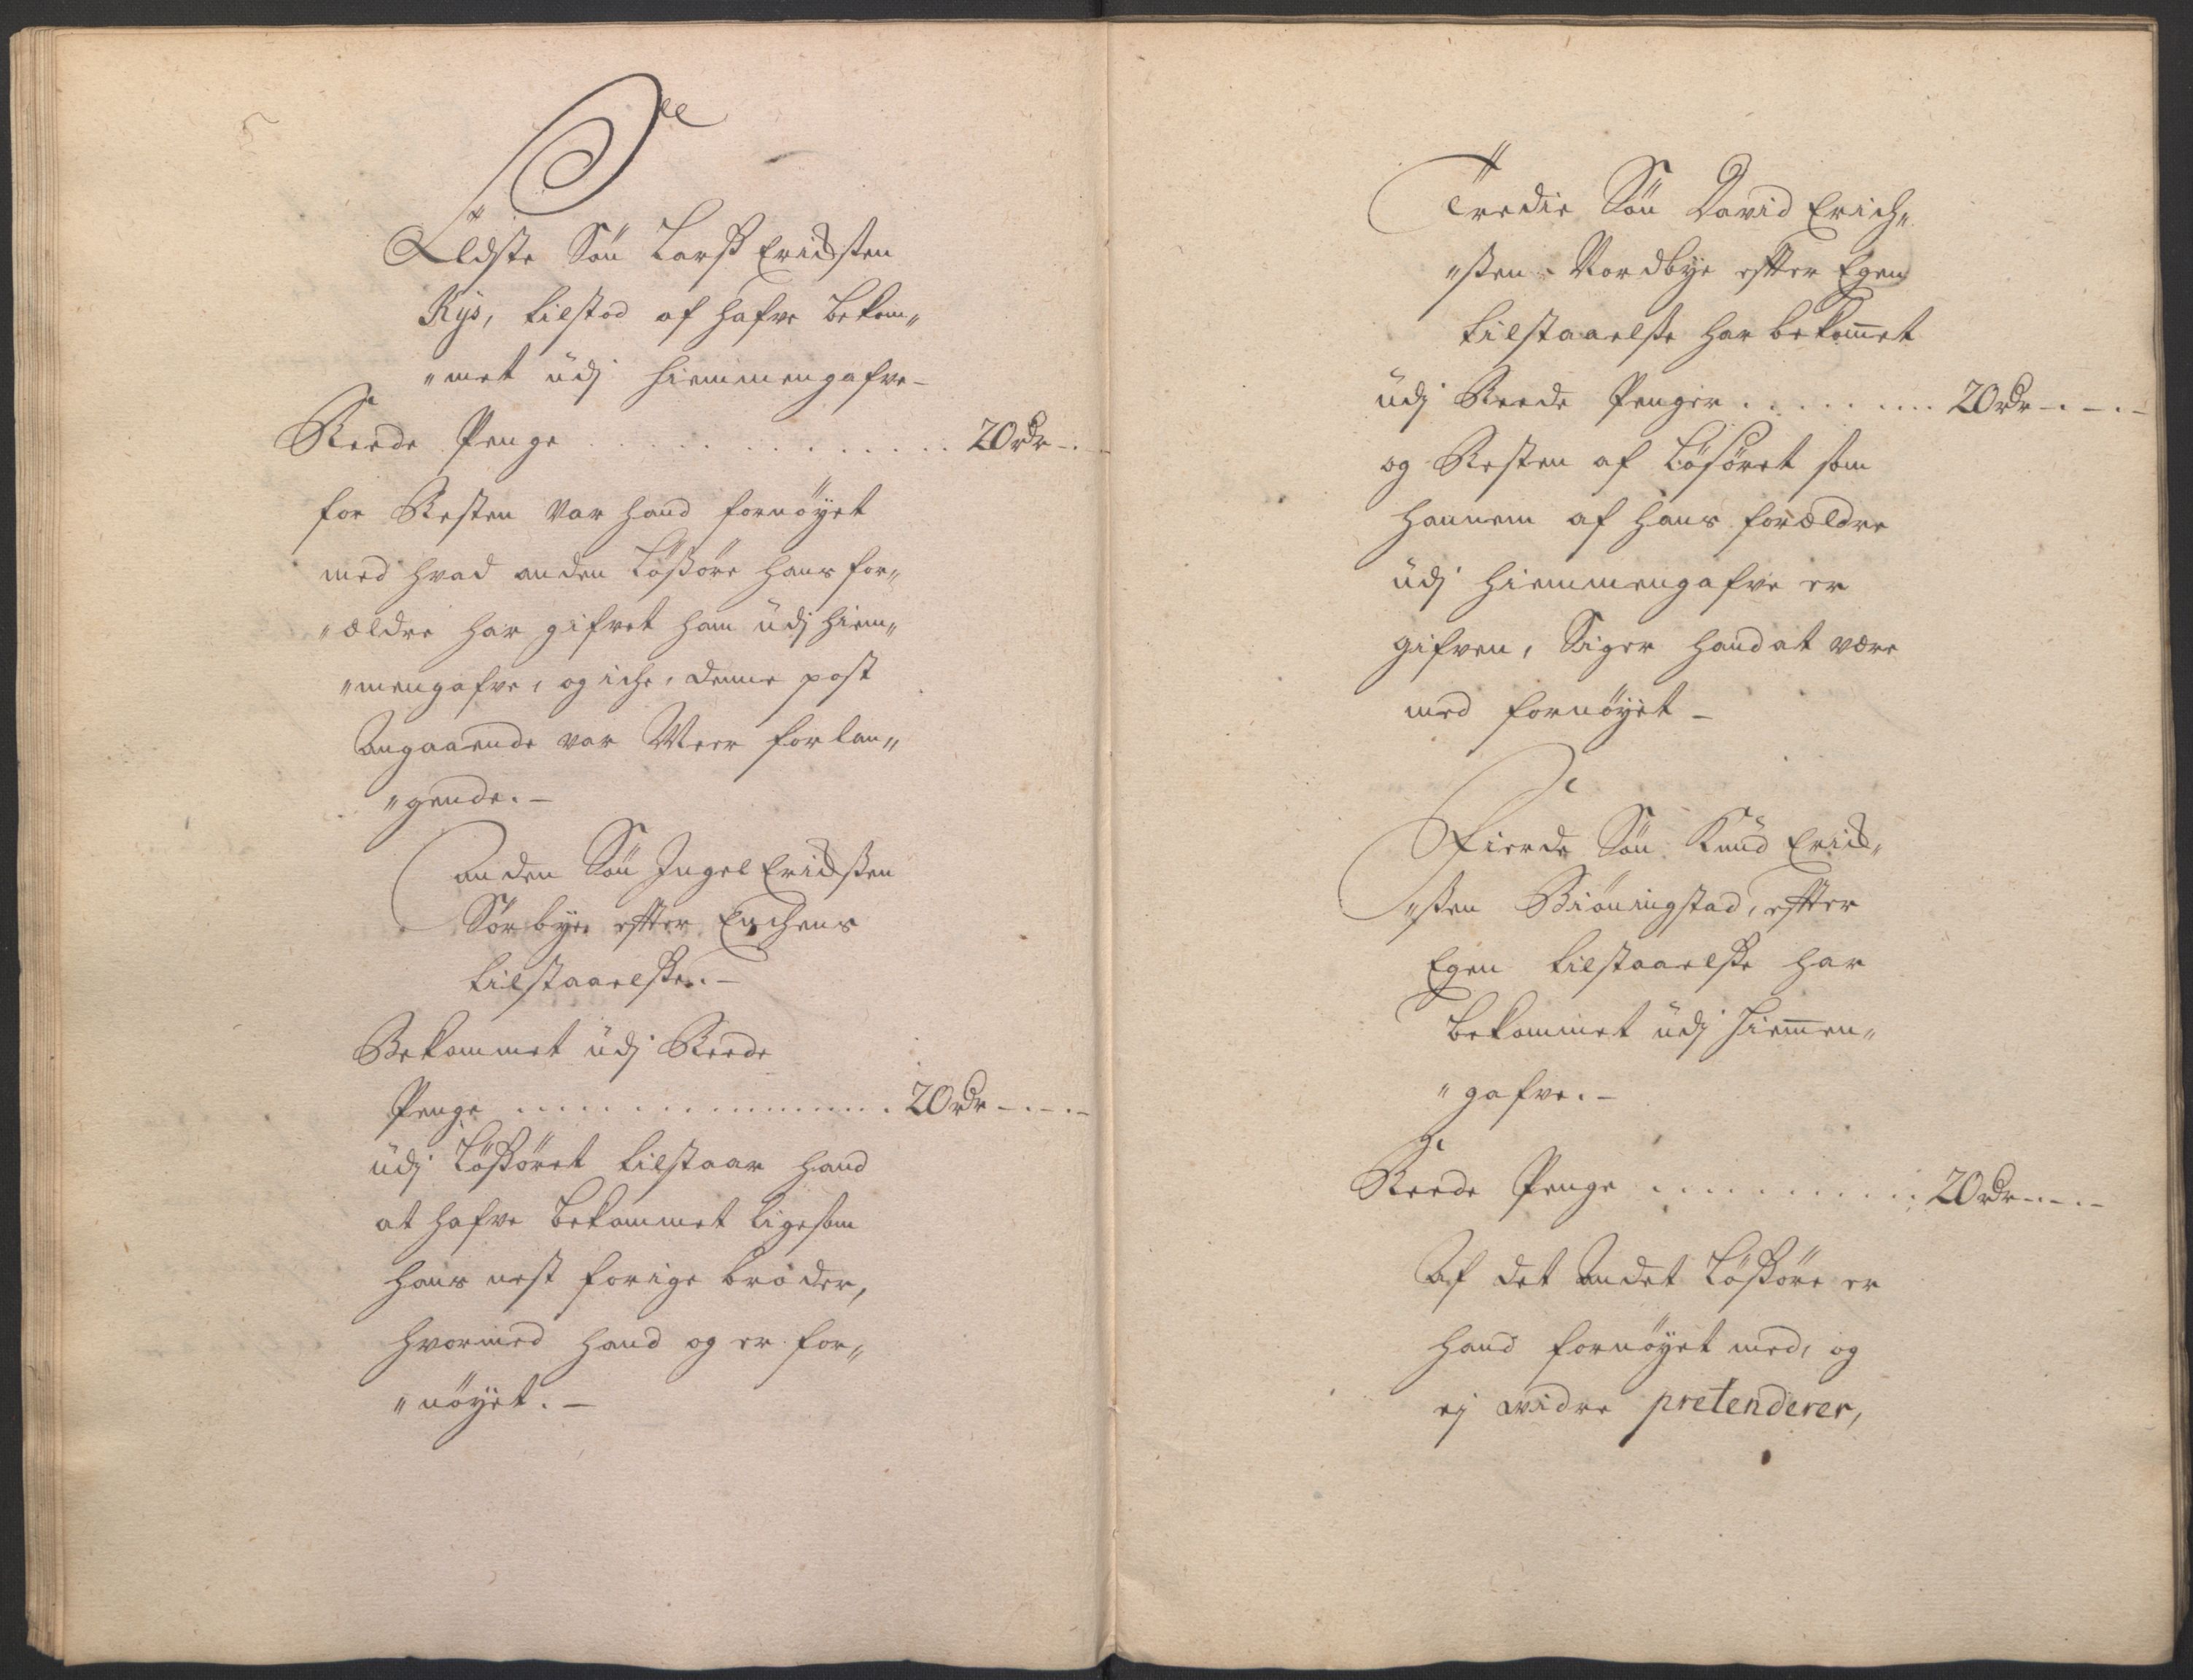 Ældste Søn Larsß Erichsßen
Rÿs, tilstod af hafve bekom„
„met üdj hiemmengafve –
Reede Penge . . . . . . . . . . . . 20 rdr – . –
for Resten var hand fornöyet
med hvad anden Lößöre hans for„
„ældre har gifvet ham üdj hiem„
„mengafve, og iche, denne post
Angaaende var Meer forlan„
„gende. –
Anden Søn Ingel Erichsßen
Sörbye, efter Enchens
tilstaaelße. –
Bekommet üdj Reede
Penge . . . . . . . . . . . . . . . . 20 rdr – . – . –
üdj Lößöret tilstaar hand
at hafve bekommet ligesom
hans nest forige broder,
hvormed hand og er for„
„nöyet. –
Tredie Søn David Erich„
„ßen Nordbye efter Egen
tilstaaelße har bekom̅et
üdj Reede Penger . . . . . . . . 20 rdr – . – . –
og Resten af Lösöret som
hannem af hans forældre
üdj hiemmengafve er
gifven, Siger hand at være
med fornöyet –
Fierde Søn Knud Erich„
„ßen Biöningstad, efter
Egen tilstaaelße har
bekommet üdj hiem̅en„
„gafve. –
Reede Penge . . . . . . . . . . . 20 rdr – . – . –
Af det Andet Lößöre er
hand fornöyet med, og
ej widre pretenderer,